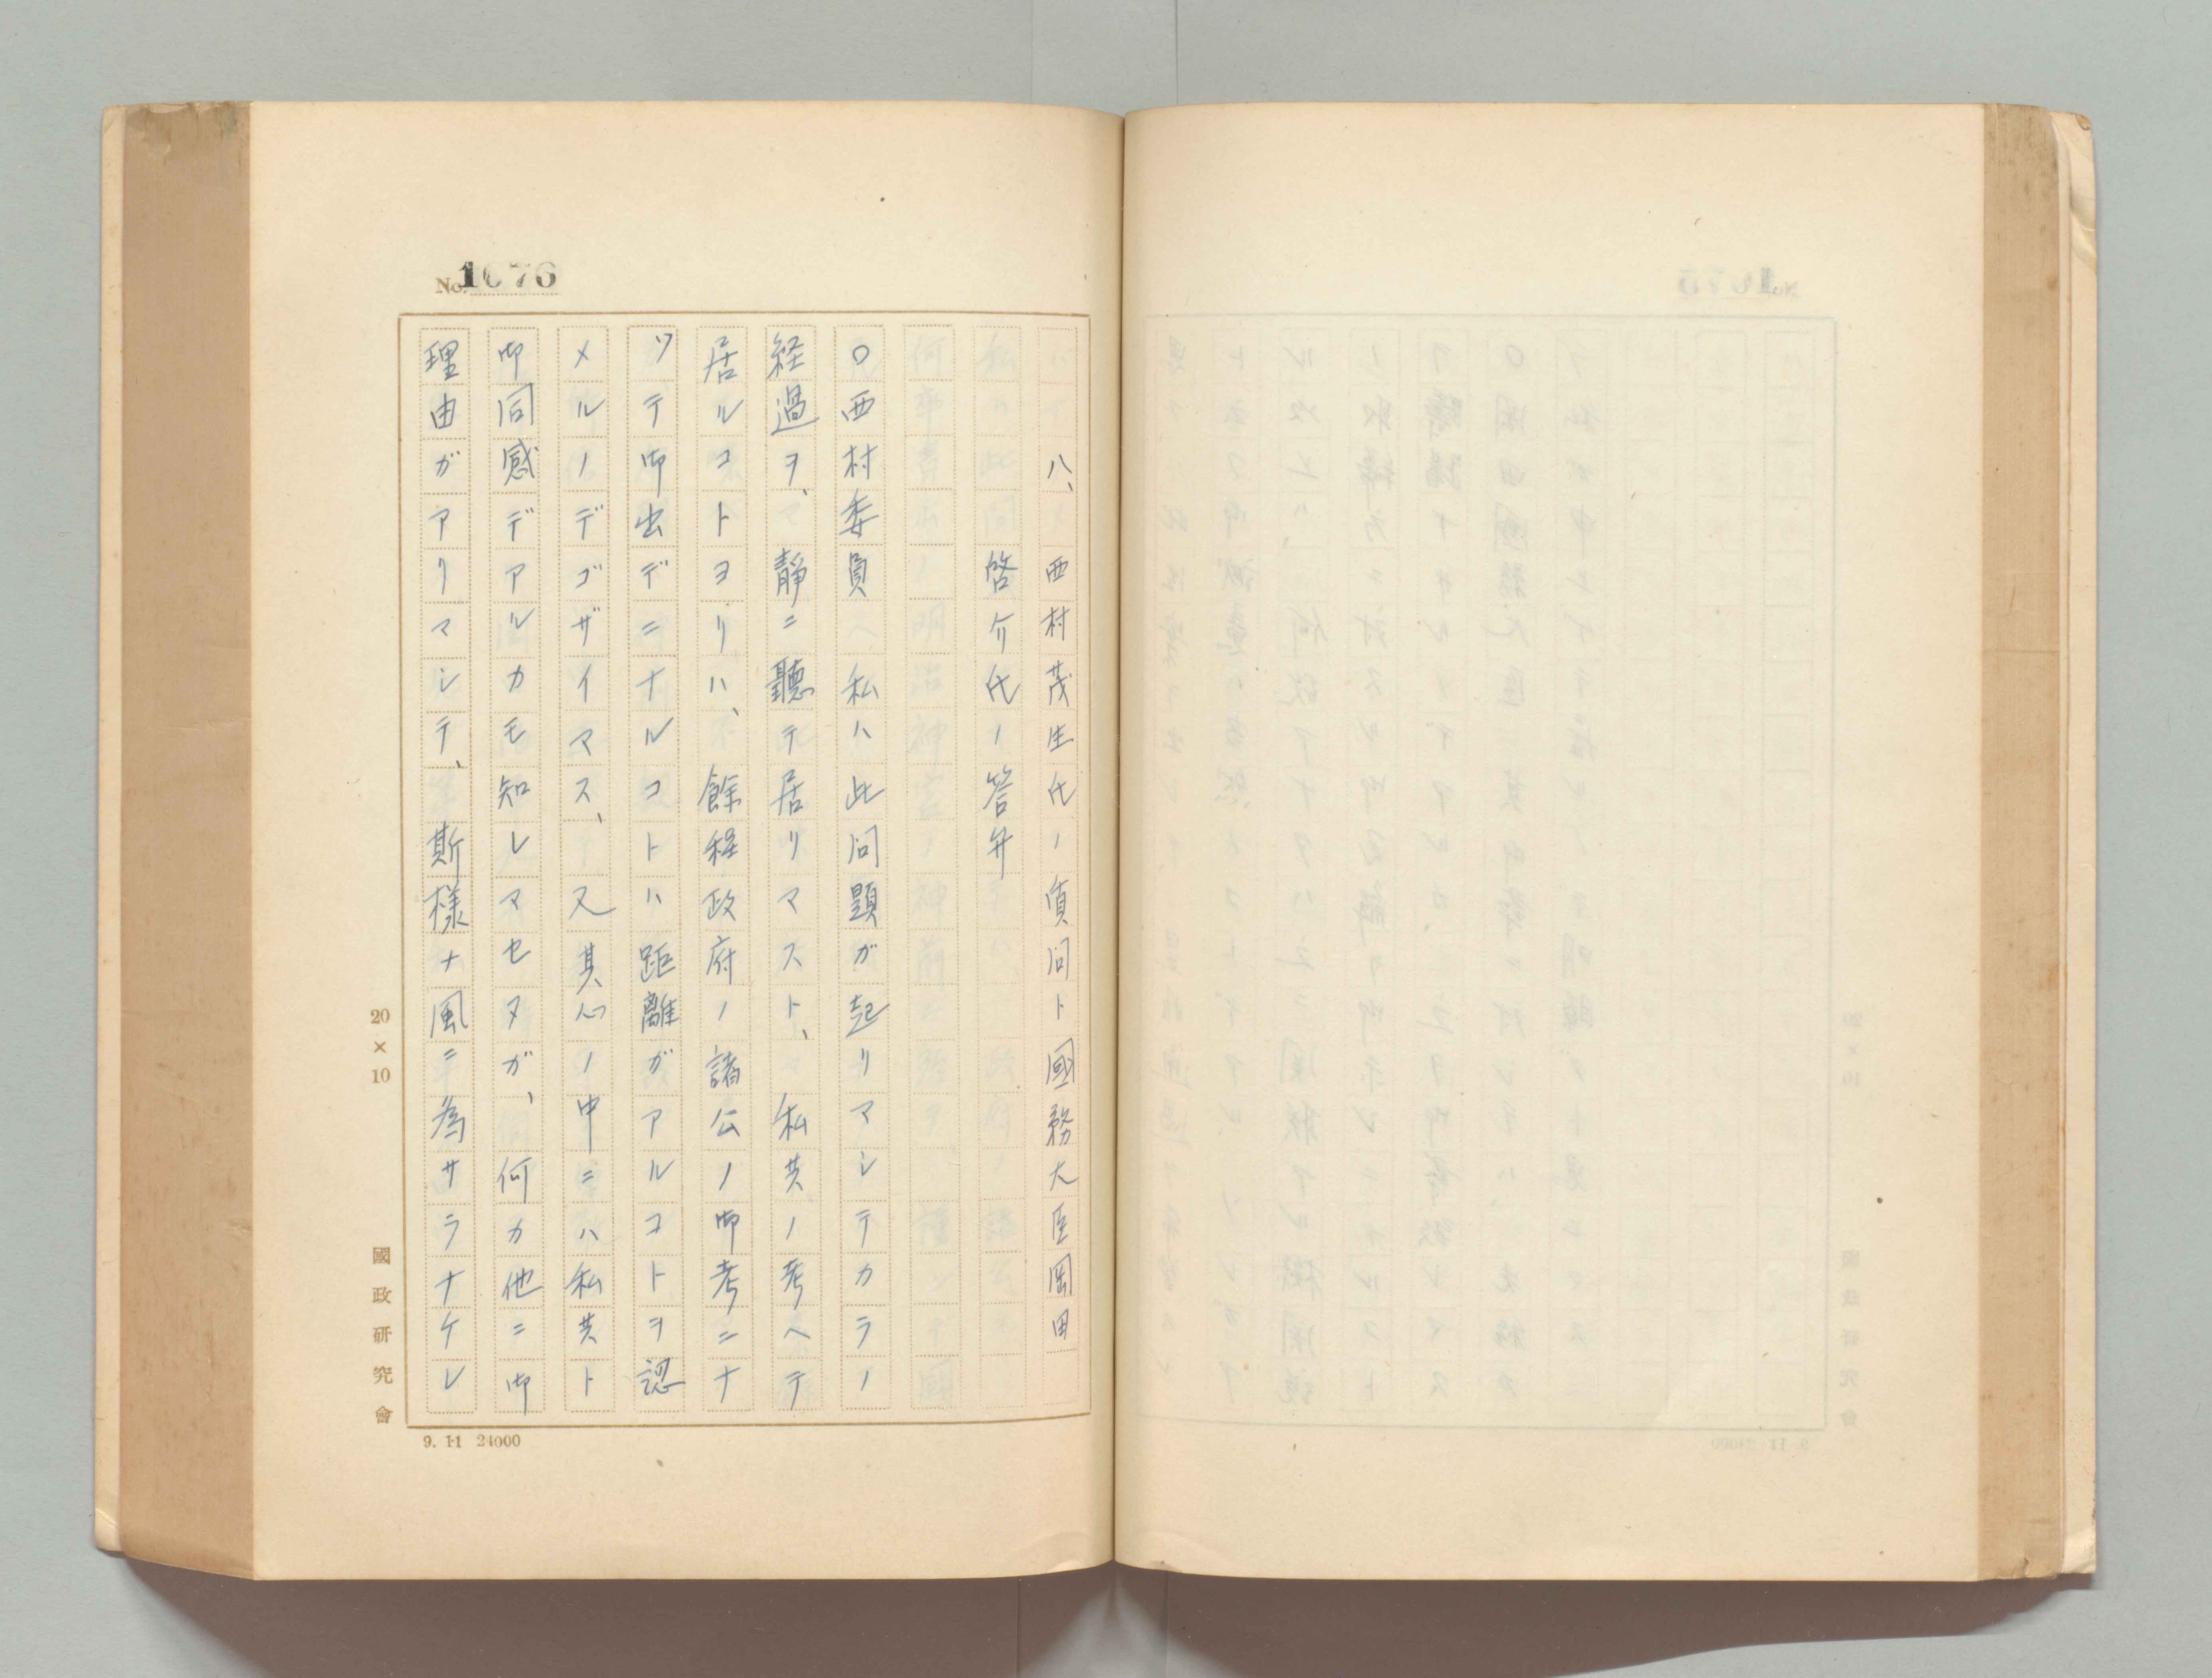 No. 1076
八、西村茂生氏ノ質問ト國務大臣岡田
啓介氏ノ答弁
〇西村委員 私ハ此問題ガ起リマシテカラノ
経過ヲ、靜ニ聽テ居リマスト、私共ノ考ヘテ
居ルコトヨリハ、餘程政府ノ諸公ノ御考ニナ
ツテ御出デニナルコトハ距離ガアルコトヲ認
メルノデゴザイマス、又其心ノ中ニハ私共ト
御同感デアルカモ知レマセヌガ、何カ他ニ御
理由ガアリマシテ、斯様ナ風ニ為サラナケレ
20×10
國政研究會
9. 11 24000